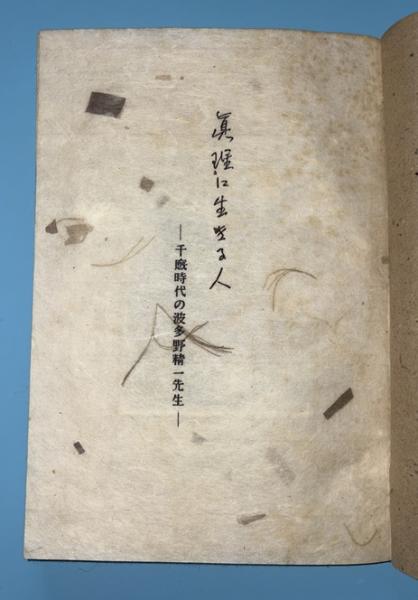 眞理に生きる人
―千廐時代の波多野精一先生―